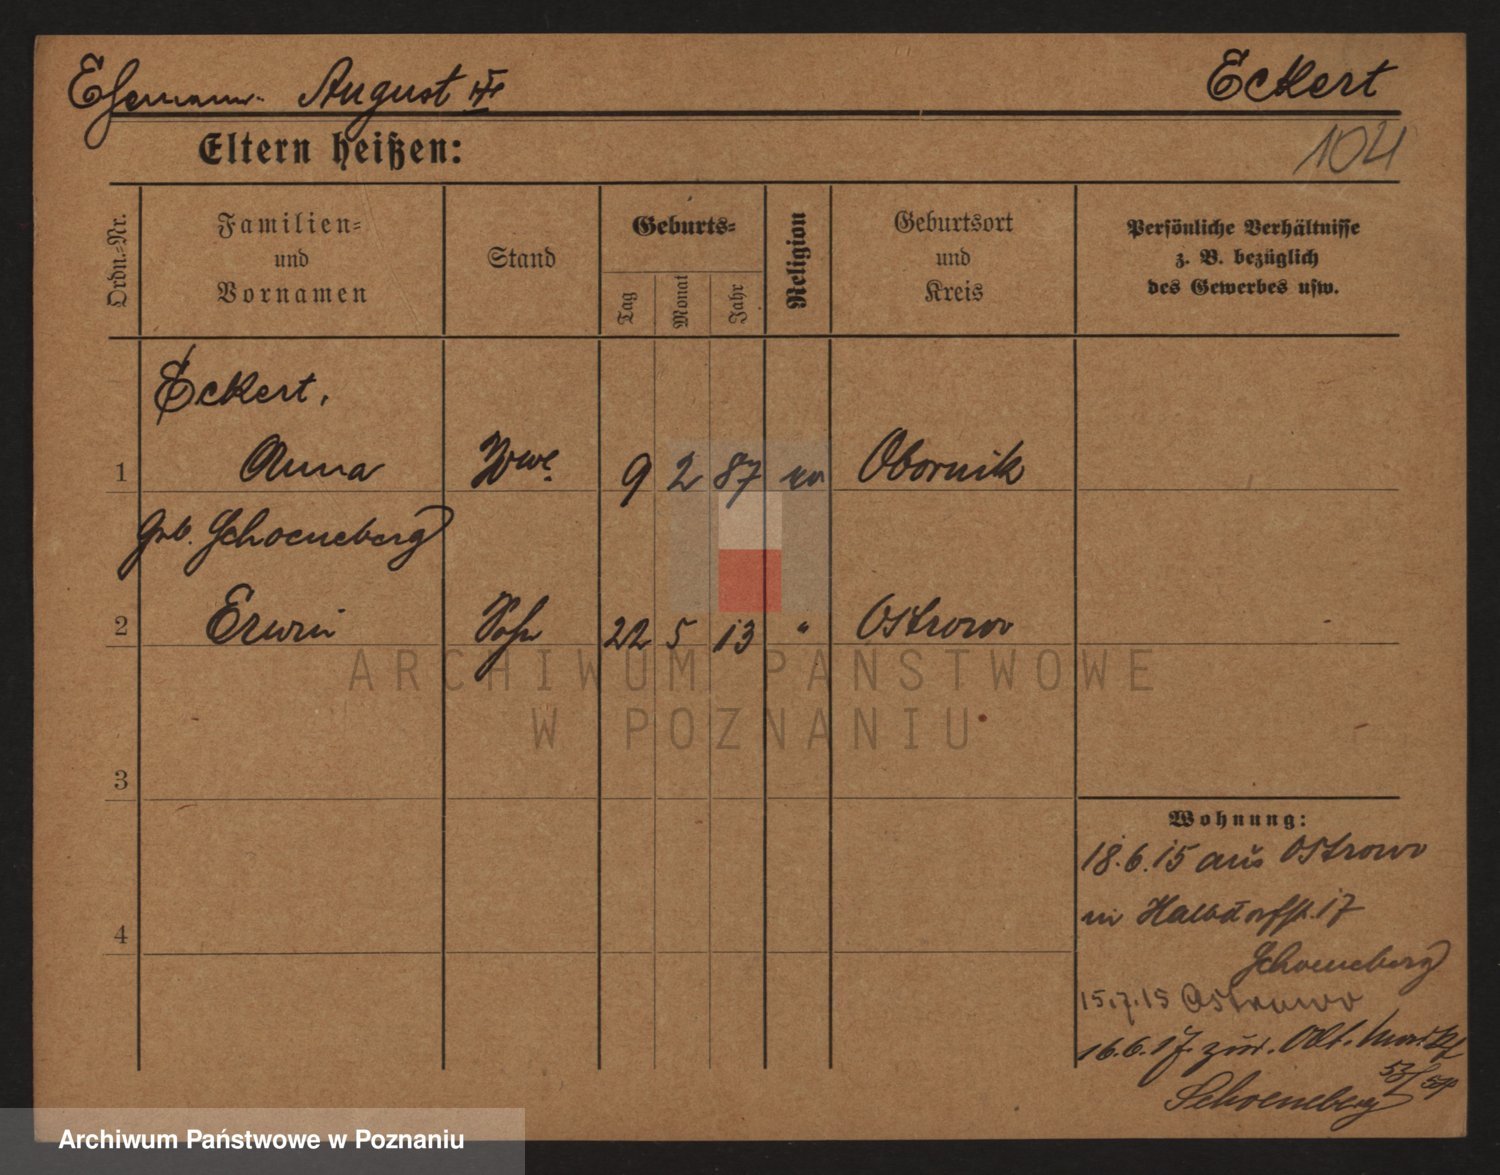 Ehemann August Eckert
104
Eltern heißen:
Ordn.-Nr.
Familien-
und
Vornamen
Stand
Geburts-
Tag
Monat
Jahr
Religion
Geburtsort
und
Kreis
Persönliche Verhältnisse
z. B. bezüglich
des Gewerbes usw.
Eckert,
1 Anna Wwe. 9 2 87 Obornik
geb. Schoeneberg
2 Erwin Sohn 22 5 13 " Ostrowo
ARCHIWUM PAŃSTWOWE
W POZNANIU
3
4
Wohnung:
18.6.15 aus Ostrowo
in Halbdorfstr. 17
Schoeneberg
15.7.15 Ostrowo
16.6.17. zur. Alt. Markt
53/54
Schoeneberg
Archiwum Państwowe w Poznaniu